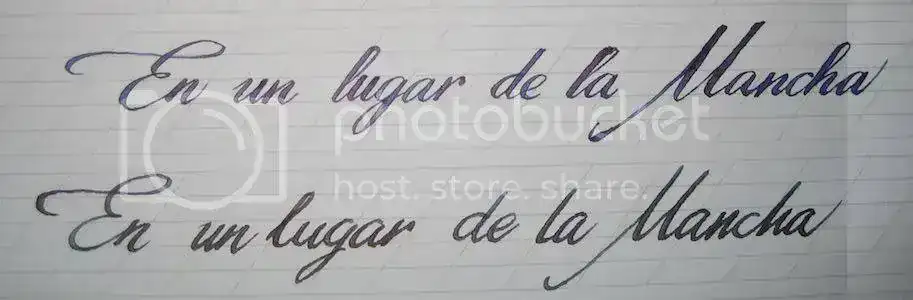 En un lugar de la Mancha
photobucket
host. store. share.
En un lugar de la Mancha